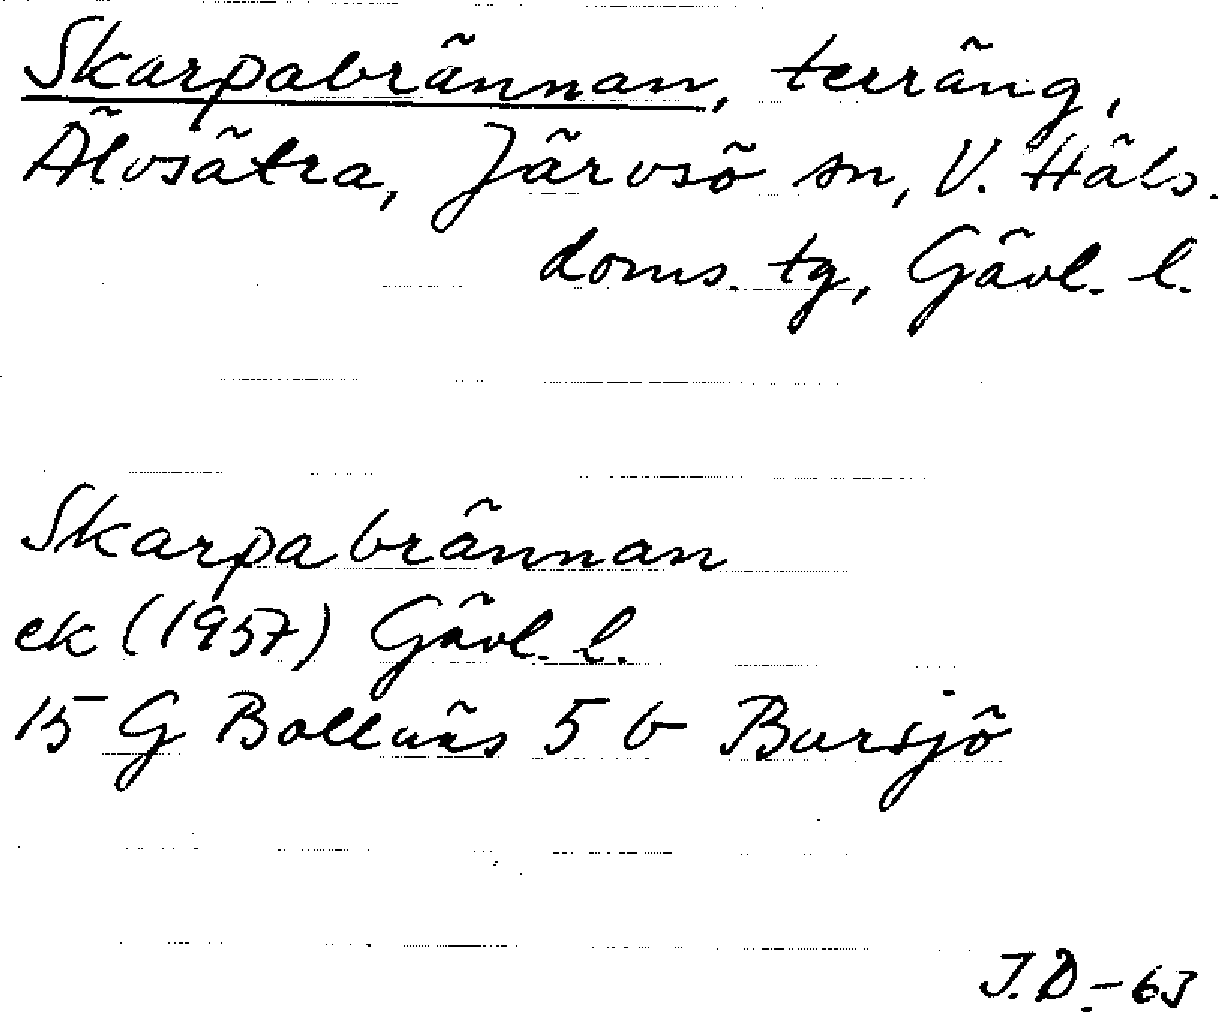 Skarpabrännan, terräng,
Älvsätra, Järvsö sn, V. Häls.
doms. tg, Gävl. l.
Skarpabrännan
ek (1957) Gävl. l.
15 G Bollnäs 5 b Bursjö
J.D.-63